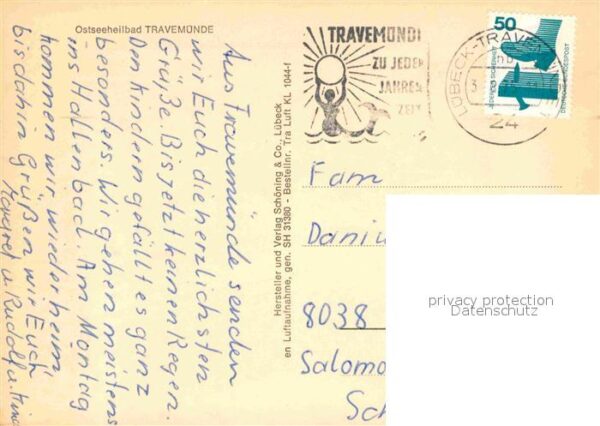 Ostseeheilbad TRAVEMÜNDE
Aus Travemünde senden
wir Euch die herzlichsten
Grüße. Bis jetzt keinen Regen.
Den Kindern gefällt es ganz
besonders. Wir gehen meistens
ins Hallenbad. Am Montag
kommen wir wieder heim
bis dahin Grüßen wir Euch
u. Rudolf u.
Hersteller und Verlag Schöning & Co., Lübeck
en Luftaufnahme, gen. SH 31380 - Bestellnr. Tra Luft KL 1044-f
TRAVEMÜND
ZU JEDER
JAHRES
ZEIT
LÜBECK-TRAVE
24
50
JEDERZEIT SICHERHEIT
DEUTSCHE BUNDESPOST
Fam
Daniu
8038
Salomo
Sch
privacy protection
Datenschutz